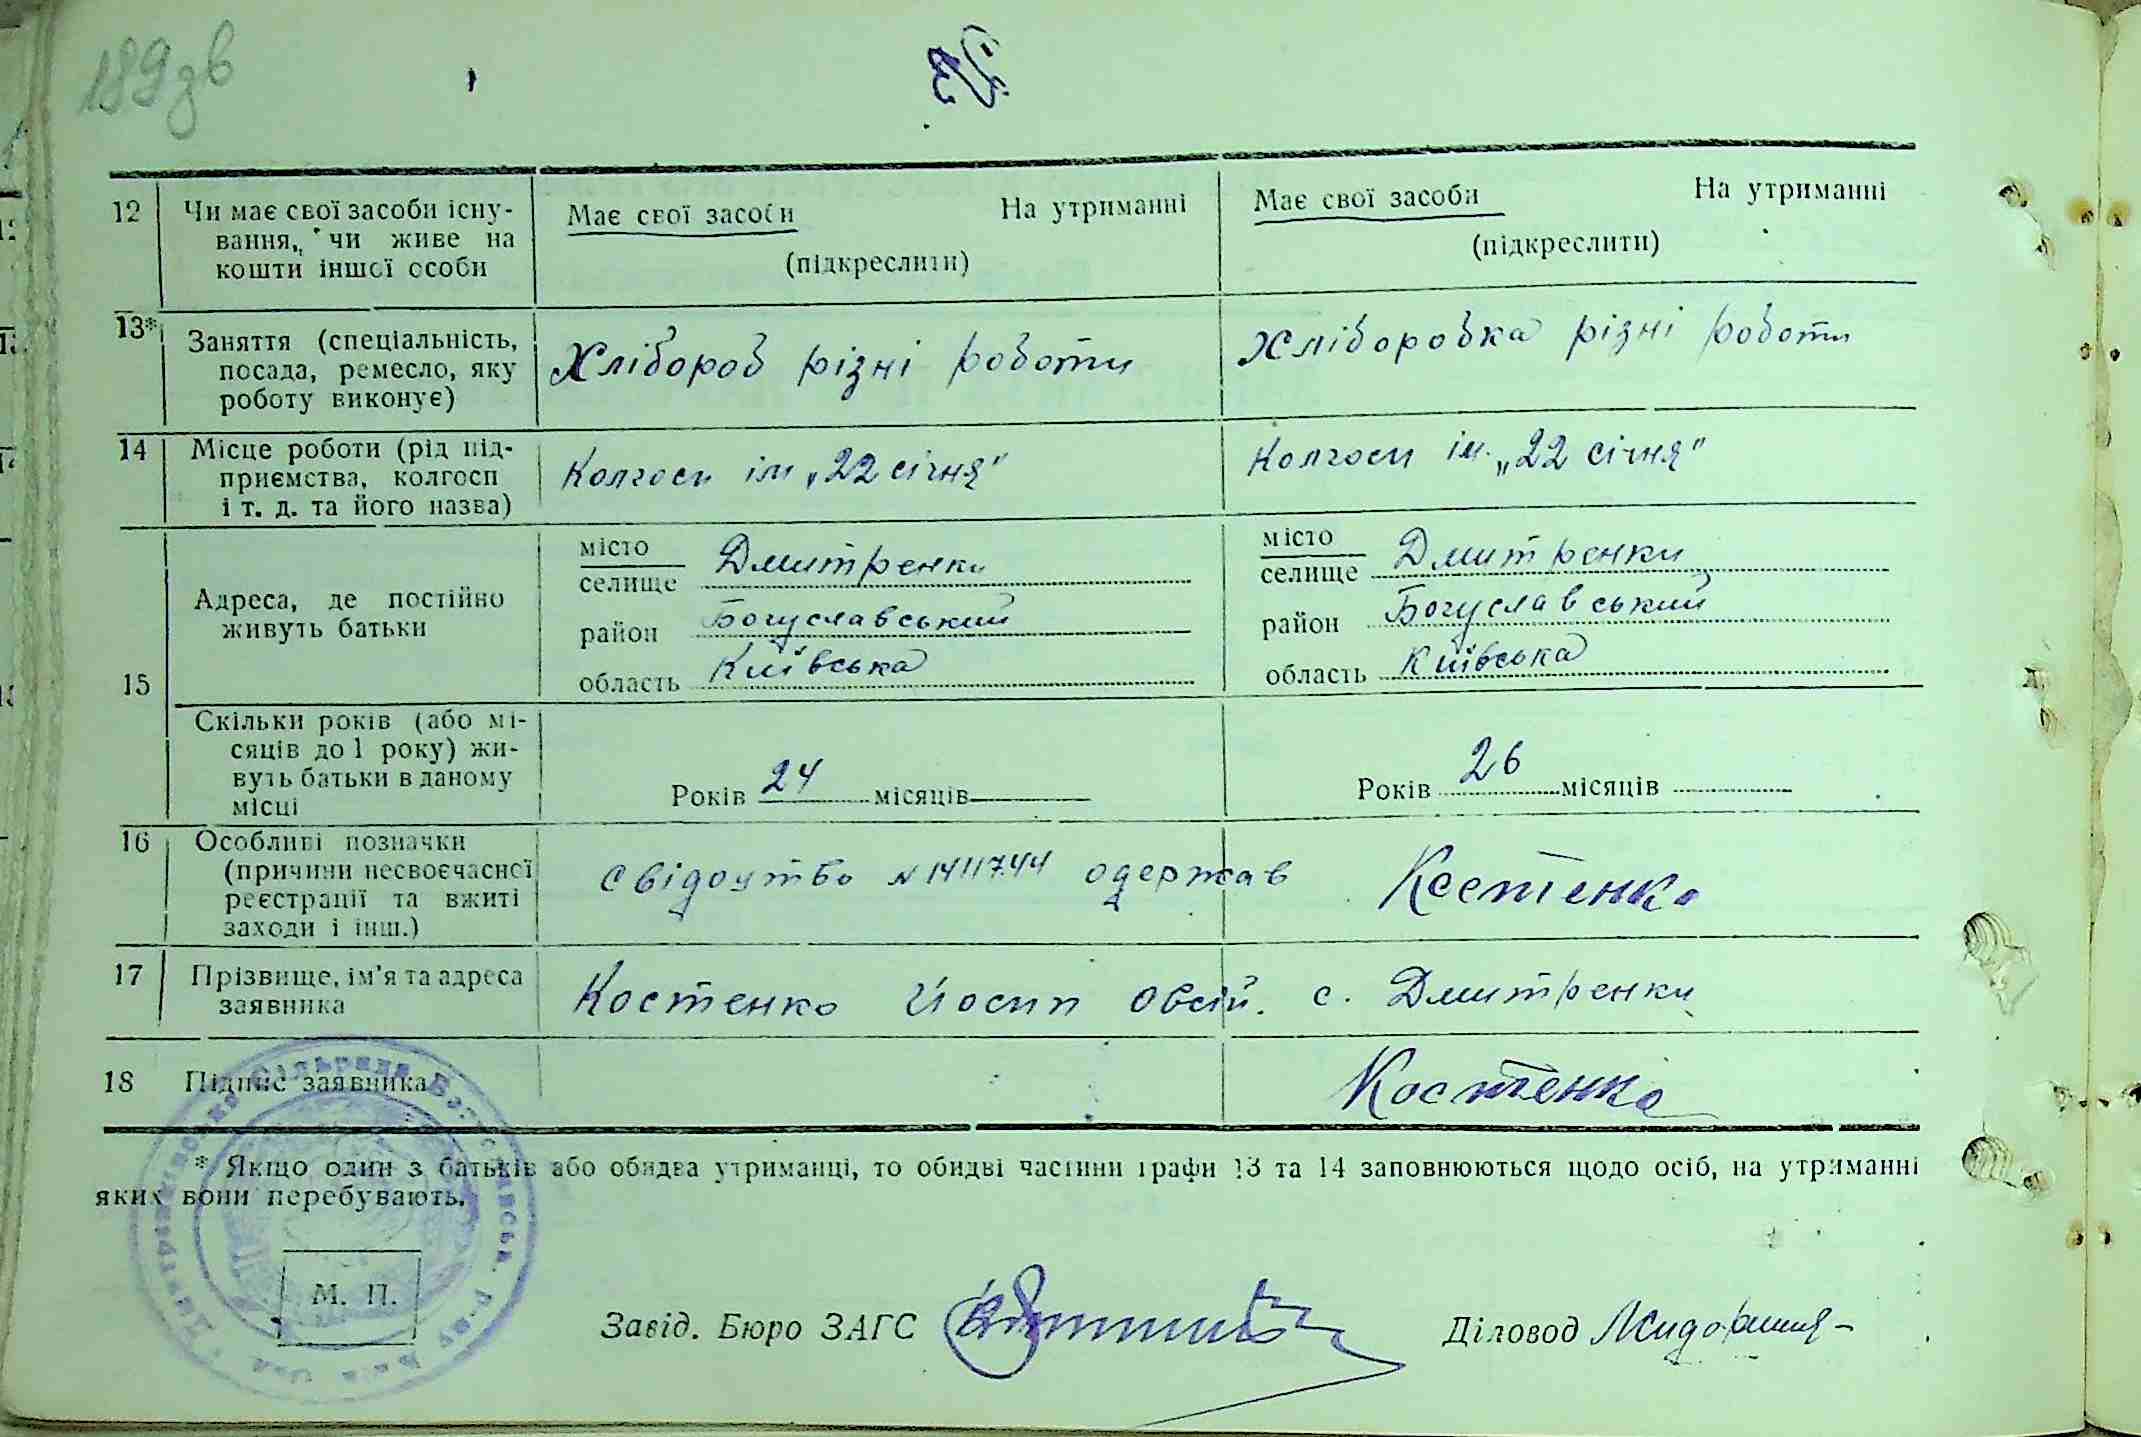 189зв
12 Чи має свої засоби існу-
вання, чи живе на
кошти іншої особи
Має свої засоби На утриманні
(підкреслити)
Має свої засоби На утриманні
(підкреслити)
13* Заняття (спеціальність,
посада, ремесло, яку
роботу виконує)
Хлібороб різні роботи
Хліборобка різні роботи
14 Місце роботи (рід під-
приємства, колгосп
і т. д. та його назва)
Колгосп ім „22 січня"
Колгосп ім. „22 січня"
15
Адреса, де постійно
живуть батьки
місто
селище Дмитренки
район Богуславський
область Київська
місто
селище Дмитренки
район Богуславський
область Київська
Скільки років (або мі-
сяців до 1 року) жи-
вуть батьки в даному
місці
Років 24 місяців
Років 26 місяців
16 Особливі позначки
(причини несвоєчасної
реєстрації та вжиті
заходи і інш.)
Свідоцтво № 1411744 одержав Костенко
17 Прізвище, ім'я та адреса
заявника
Костенко Йосип Овсій. с. Дмитренки
18 Підпис заявника Костенко
* Якщо один з батьків або обидва утриманці, то обидві частини графи 13 та 14 заповнюються щодо осіб, на утриманні
яких вони перебувають.
М. П.
Завід. Бюро ЗАГС
Діловод